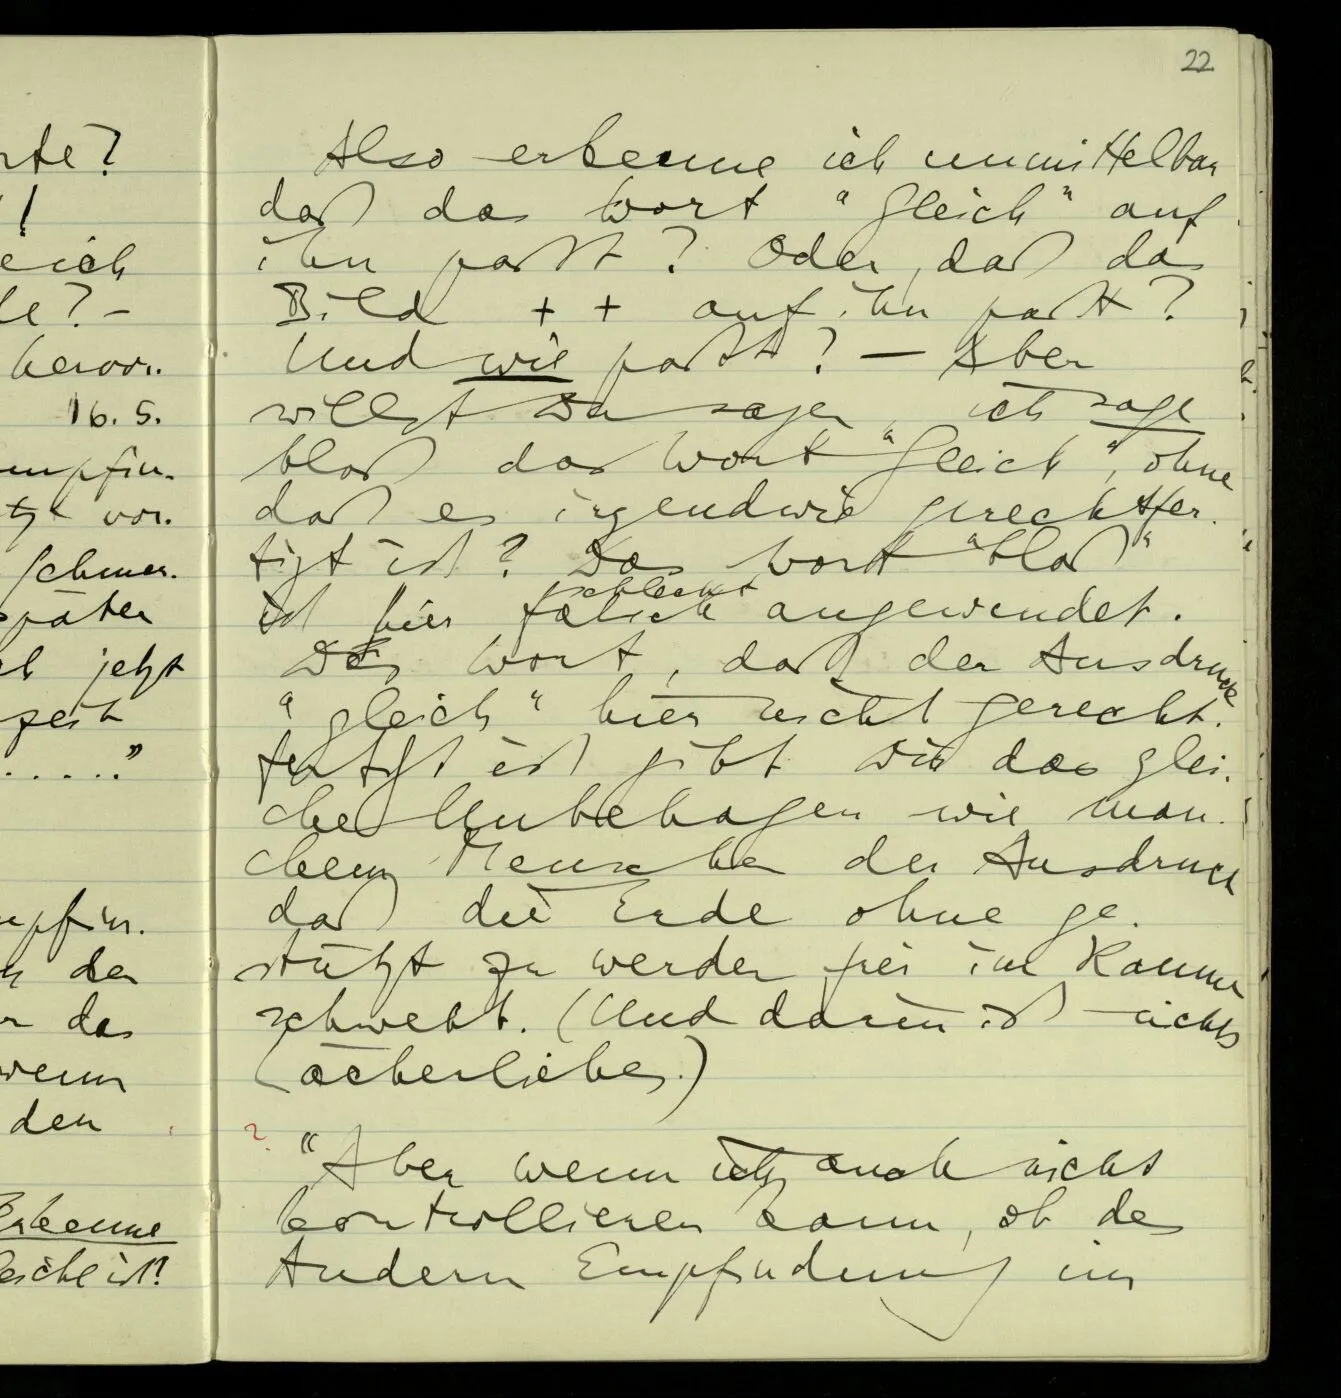 rte?
!
eich
le? –
hervor.
16. 5.
empfin-
vor.
Schmer-
später
jetzt
zeit
. . . . . ."
mpfin-
der
das
wenn
den
Erkenne
leiche ist?
22
Also erkenne ich unmittelbar
daß das Wort "gleich" auf
ihn paßt? Oder, daß das
Bild + + auf ihn paßt?
Und wie paßt? — Aber
willst Du sagen, ich sage
bloß das Wort "gleich", ohne
daß es irgendwie gerechtfer-
tigt ist? Das Wort "bloß"
schlecht
ist hier falsch angewendet.
Das Wort, daß der Ausdruck
"gleich" hier nicht gerecht-
fertigt ist gibt Dir das glei-
che Unbehagen wie man-
chem Menschen der Ausdruck
daß die Erde ohne ge-
stützt zu werden frei im Raume
schwebt. (Und darin ist nichts
Lächerliches.)
? "Aber wenn ich auch nicht
kontrollieren kann, ob des
Andern Empfindung im